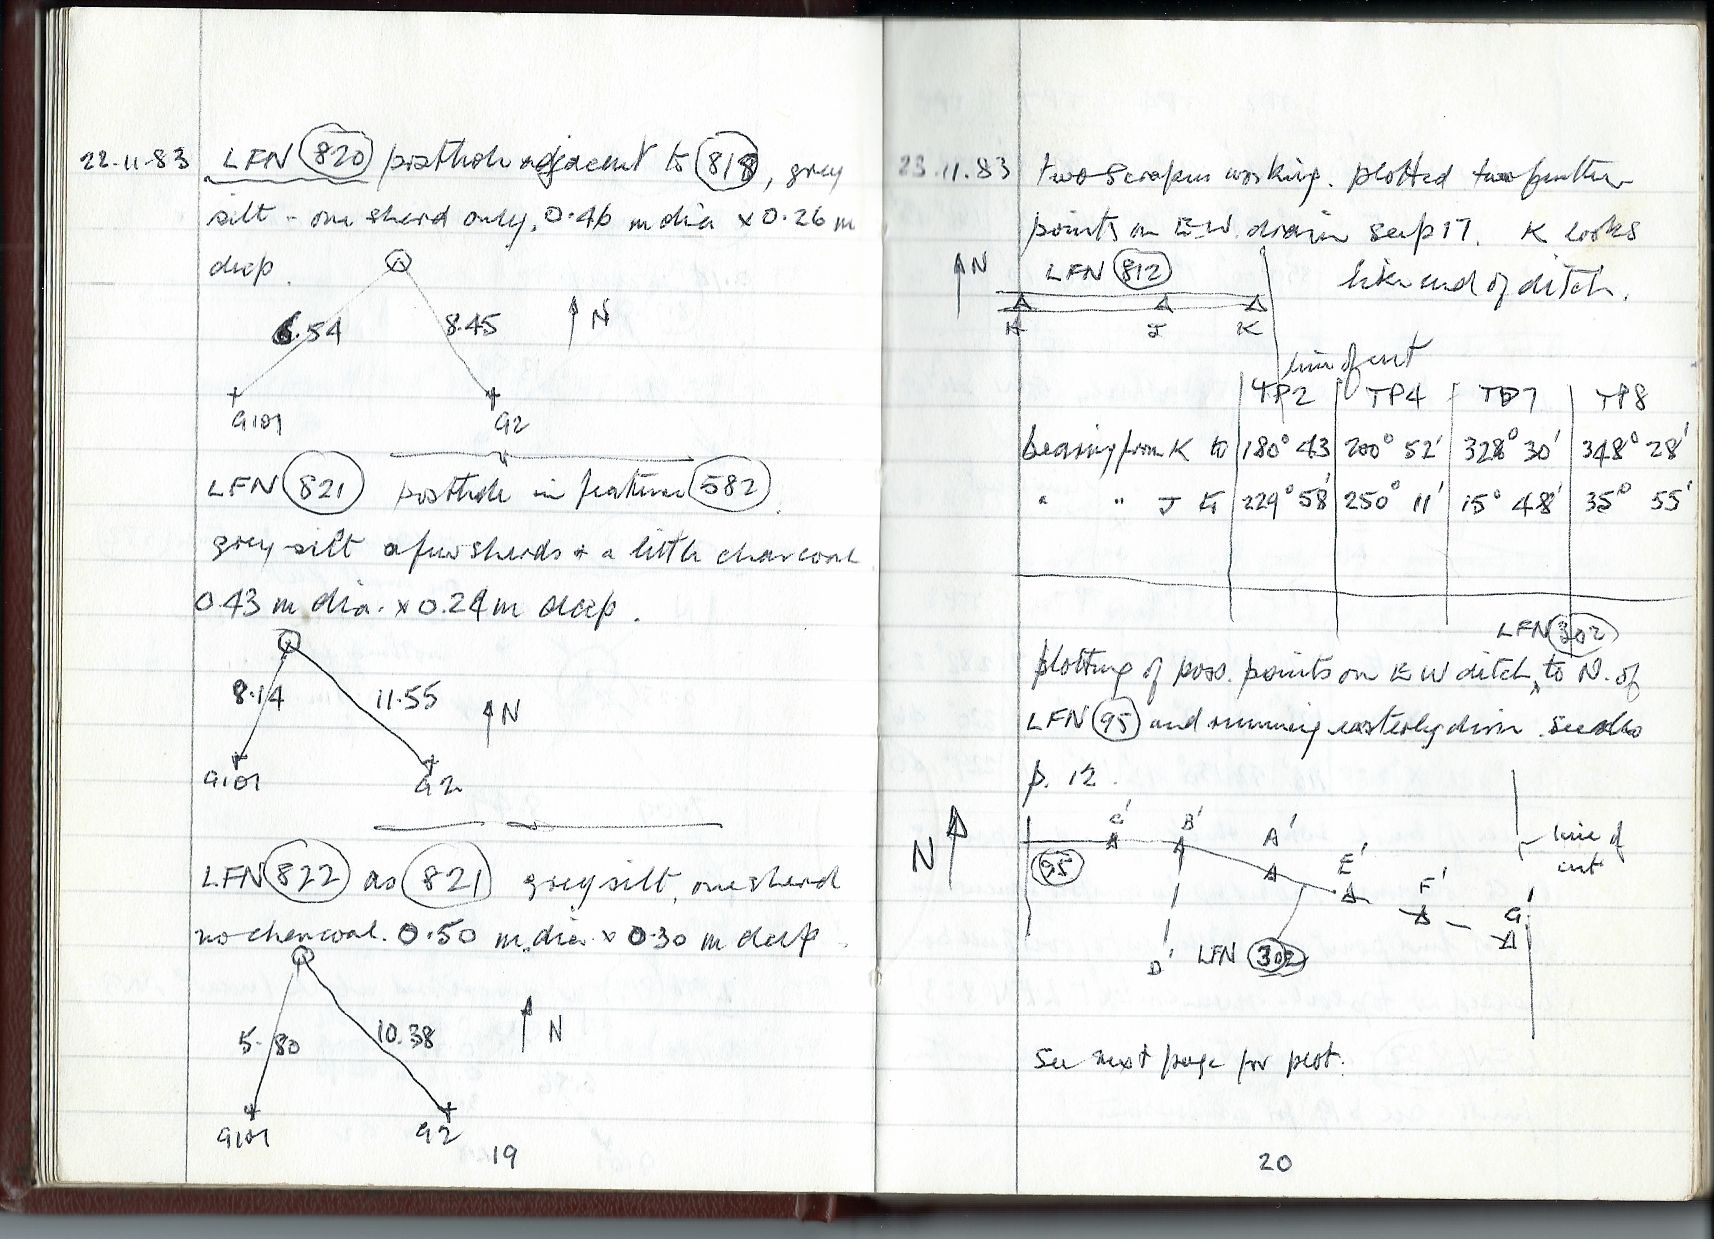 22.11.83 LFN 820 posthole adjacent to 818, grey
silt - one sherd only, 0.46 m dia x 0.26 m
deep.
N
6.54 8.45
G101 G2
LFN 821 posthole in feature 582.
grey silt a few sherds + a little charcoal
0.43 m dia. x 0.24 m deep.
8.14 11.55 N
G101 G2
LFN 822 as 821 grey silt, one sherd
no charcoal. 0.50 m. dia x 0.30 m deep.
5.80 10.38 N
G101 G2
19
23.11.83 two scrapers working. plotted two further
points on E.W. drain see p 17. K looks
like end of ditch.
N LFN 812
H J K
line of cut
TP2 TP4 TP7 TP8
bearing from K to 180° 43 200° 52' 328° 30' 348° 28'
" " J to 229° 58' 250° 11' 15° 48' 35° 55'
LFN 302
plotting of poss. points on E W ditch, to N. of
LFN 95 and running easterly dirn. see also
p. 12.
N
95 C' B' A' E' F' G'
line of
cut
D' LFN 302
See next page for plot.
20